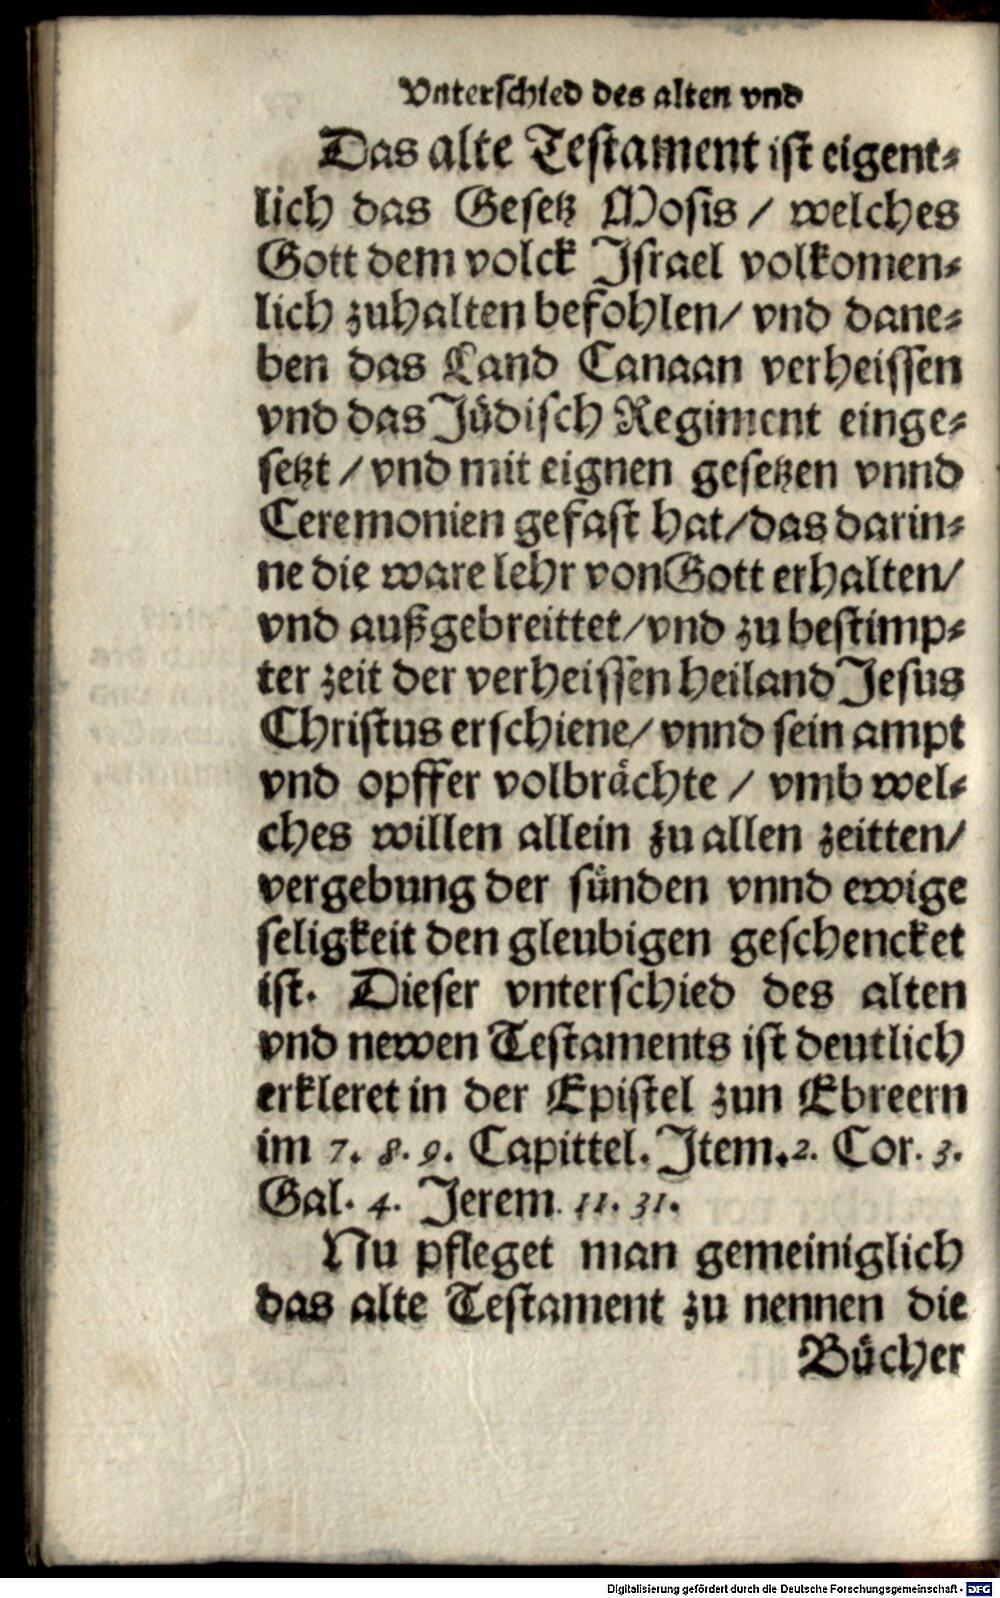 Vnterschied des alten vnd
Das alte Testament ist eigent⸗
lich das Gesetz Mosis / welches
Gott dem volck Jsrael volkomen⸗
lich zuhalten befohlen/ vnd dane⸗
ben das Land Canaan verheissen
vnd das Jüdisch Regiment einge⸗
setzt / vnd mit eignen gesetzen vnnd
Ceremonien gefast hat/das darin⸗
ne die ware lehr von Gott erhalten/
vnd außgebreittet/vnd zu bestimp⸗
ter zeit der verheissen heiland Jesus
Christus erschiene/ vnnd sein ampt
vnd opffer volbrächte / vmb wel⸗
ches willen allein zu allen zeitten/
vergebung der sünden vnnd ewige
seligkeit den gleubigen geschencket
ist. Dieser vnterschied des alten
vnd newen Testaments ist deutlich
erkleret in der Epistel zun Ebreern
im 7. 8. 9. Capittel. Jtem. 2. Cor. 3.
Gal. 4. Jerem. 11. 31.
Nu pfleget man gemeiniglich
das alte Testament zu nennen die
Bücher
Digitalisierung gefördert durch die Deutsche Forschungsgemeinschaft - DFG